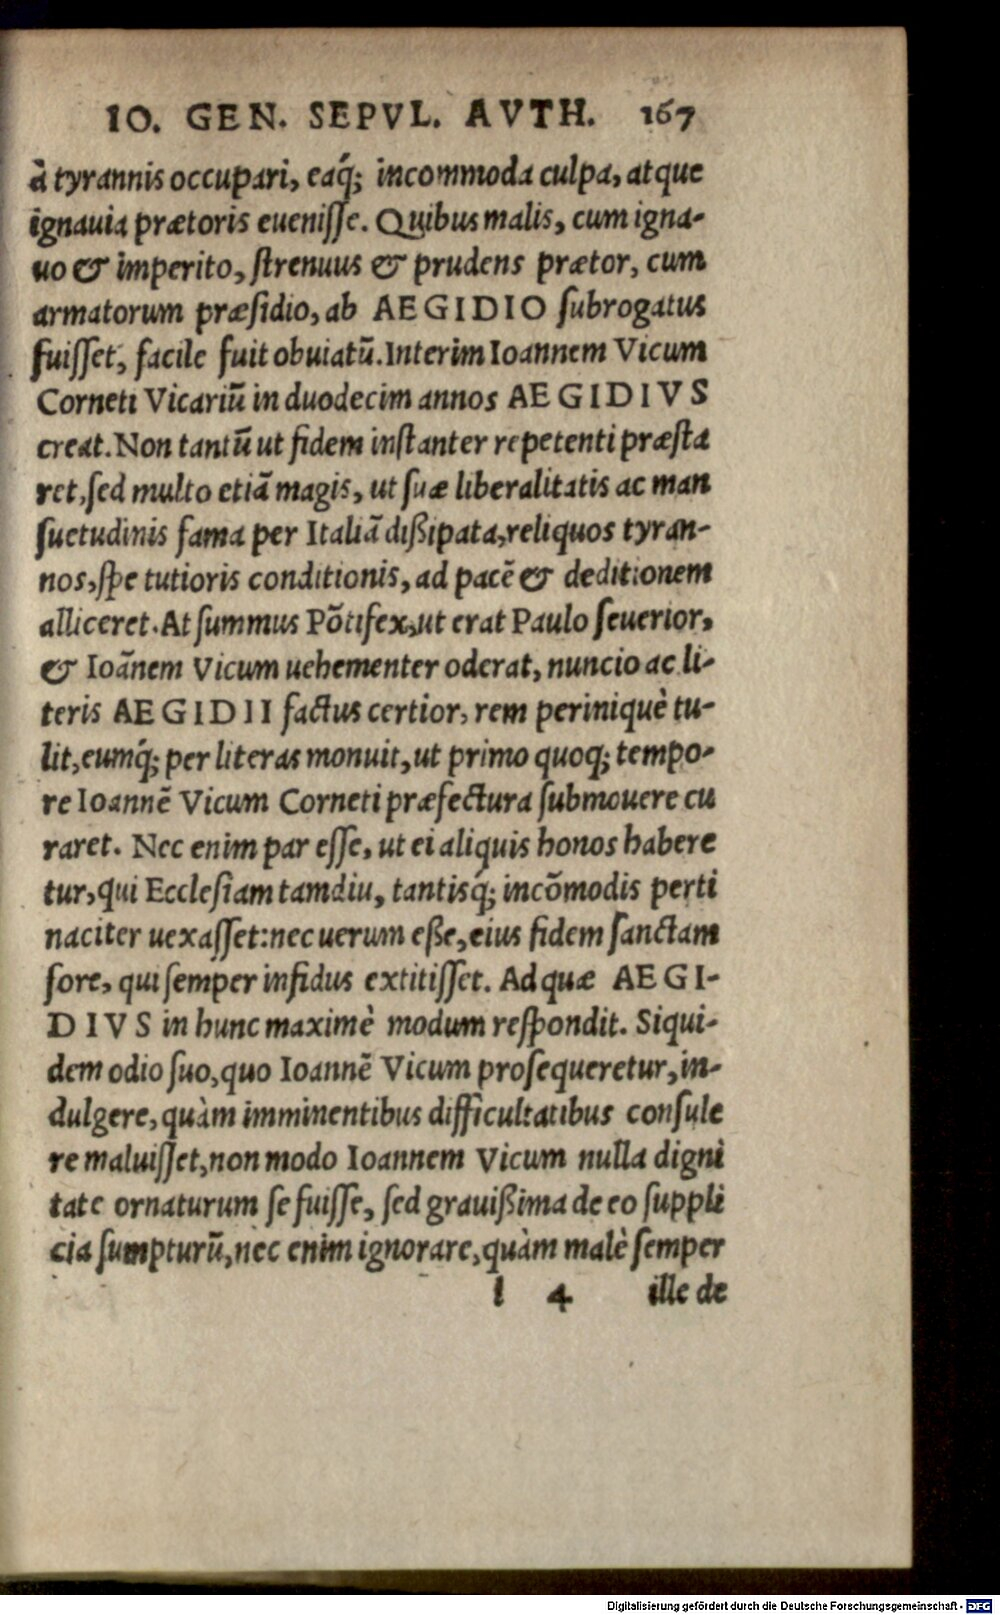 IO. GEN. SEPVL. AVTH. 167
à tyrannis occupari, eaq́; incommoda culpa, atque
ignauia prætoris eueniſſe. Quibus malis, cum igna-
uo & imperito, ſtrenuus & prudens prætor, cum
armatorum præſidio, ab AEGIDIO ſubrogatus
fuiſſet, facile fuit obuiatū. Interim Ioannem Vicum
Corneti Vicariū in duodecim annos AEGIDIVS
creat. Non tantū ut fidem inſtanter repetenti præſta
ret, ſed multo etiā magis, ut ſuæ liberalitatis ac man
ſuetudinis fama per Italiā dißipata, reliquos tyran-
nos, ſpe tutioris conditionis, ad pacē & deditionem
alliceret. At ſummus Pōtifex, ut erat Paulo ſeuerior,
& Ioānem Vicum uehementer oderat, nuncio ac li-
teris AEGIDII factus certior, rem periniquè tu-
lit, eumq́; per literas monuit, ut primo quoq; tempo-
re Ioannē Vicum Corneti præfectura ſubmouere cu
raret. Nec enim par eſſe, ut ei aliquis honos habere
tur, qui Eccleſiam tamdiu, tantisq́; incōmodis perti
naciter uexaſſet: nec uerum eße, eius fidem ſanctam
fore, qui ſemper infidus extitiſſet. Ad quæ AEGI-
DIVS in hunc maximè modum reſpondit. Siqui-
dem odio ſuo, quo Ioannē Vicum proſequeretur, in-
dulgere, quàm imminentibus difficultatibus conſule
re maluiſſet, non modo Ioannem Vicum nulla digni
tate ornaturum ſe fuiſſe, ſed grauißima de eo ſuppli
cia ſumpturū, nec enim ignorare, quàm malè ſemper
l 4 ille de
Digitalisierung gefördert durch die Deutsche Forschungsgemeinschaft - DFG